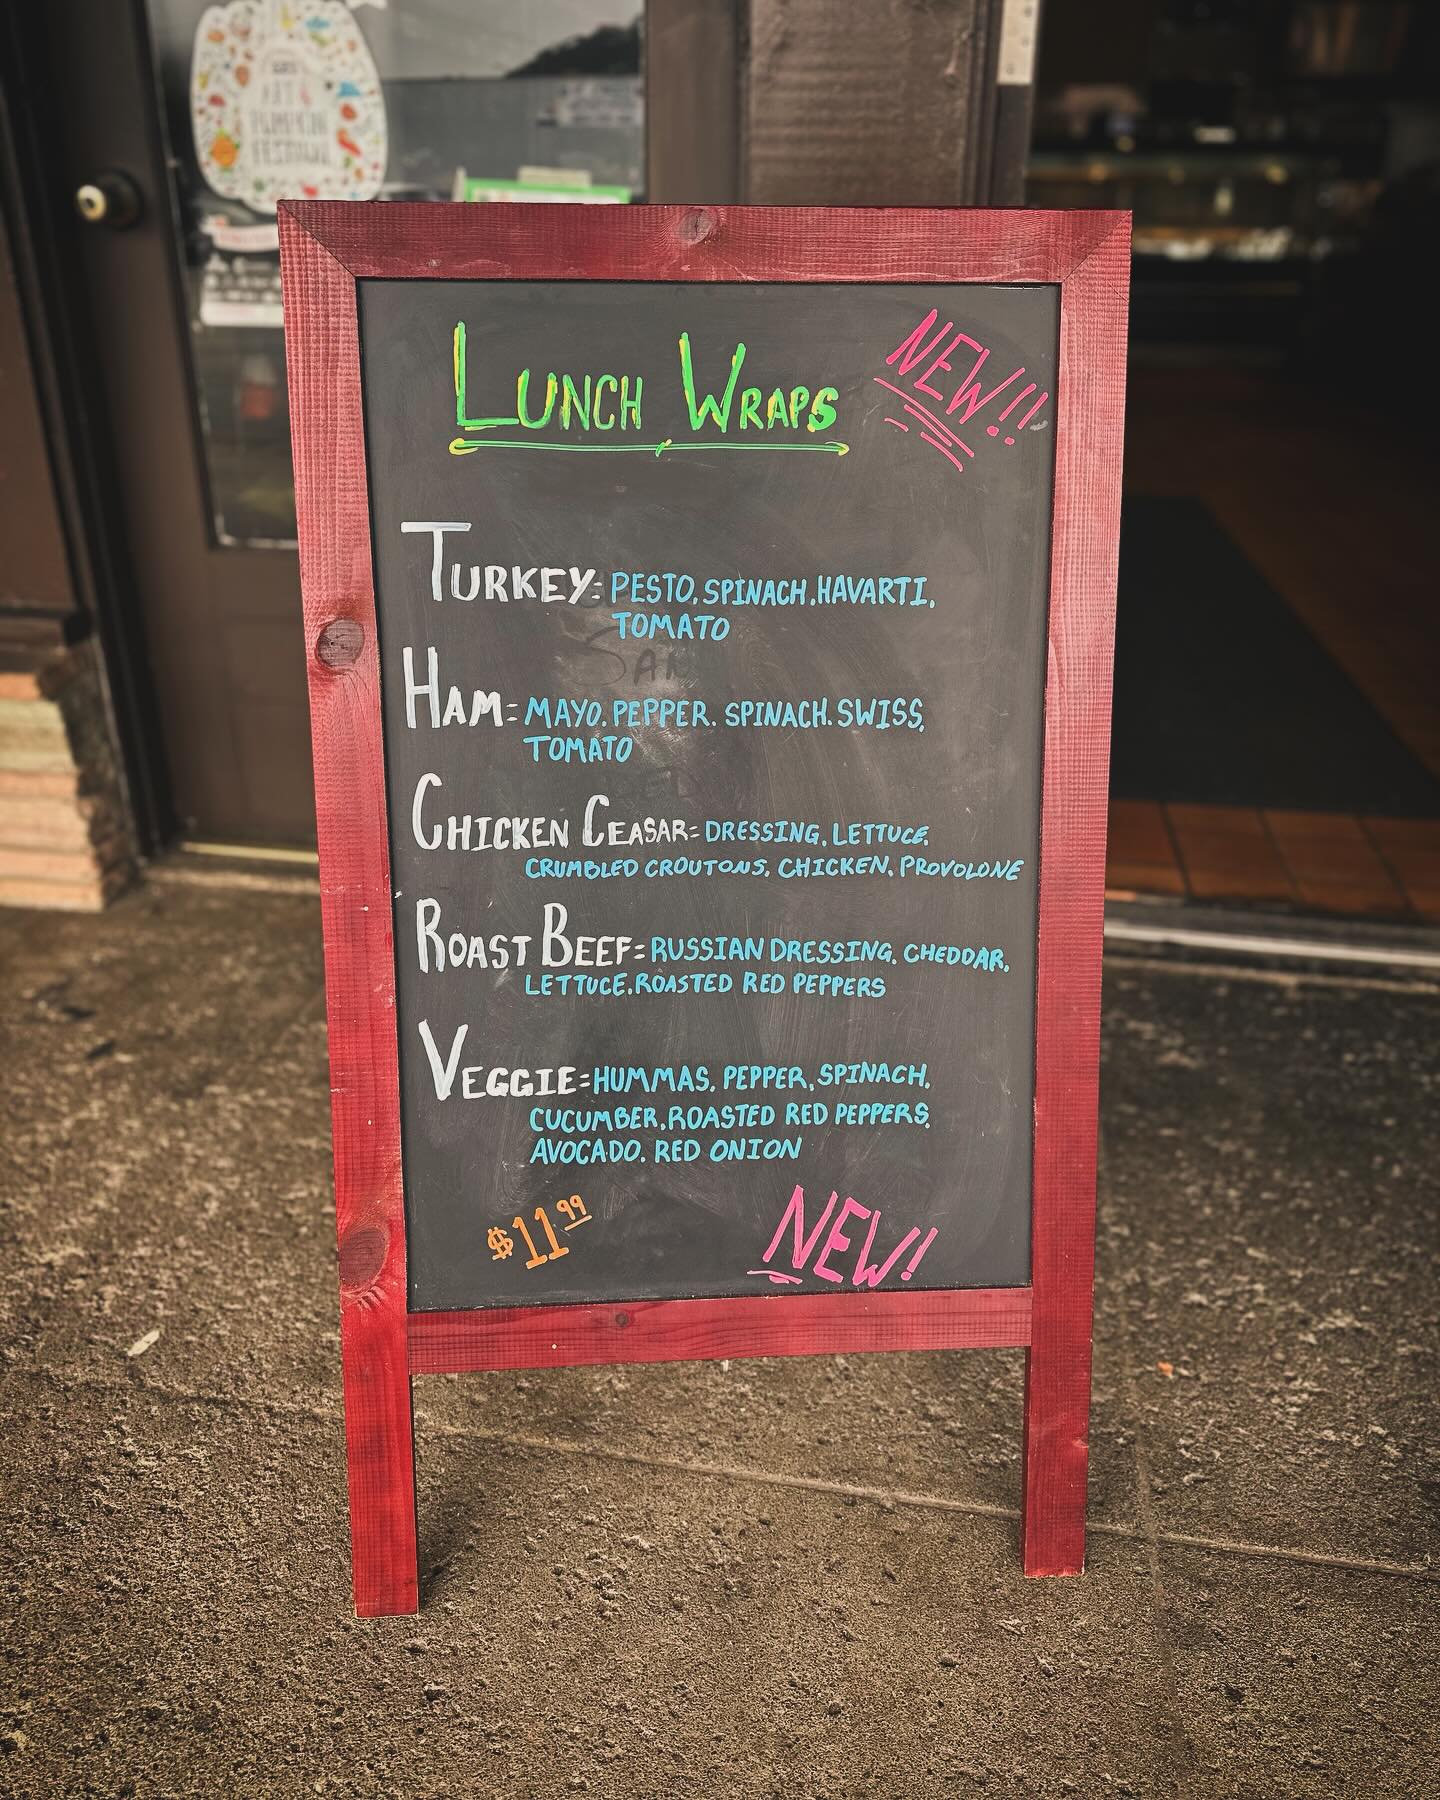 ART &
PUMPKIN
FESTIVAL
LUNCH WRAPS
NEW!!
TURKEY: PESTO, SPINACH, HAVARTI,
TOMATO
SAN
HAM: MAYO, PEPPER, SPINACH, SWISS,
TOMATO
CHICKEN CEASAR: DRESSING, LETTUCE,
CRUMBLED CROUTONS, CHICKEN, PROVOLONE
ROAST BEEF: RUSSIAN DRESSING, CHEDDAR,
LETTUCE, ROASTED RED PEPPERS
VEGGIE: HUMMAS, PEPPER, SPINACH,
CUCUMBER, ROASTED RED PEPPERS,
AVOCADO, RED ONION
$11.99
NEW!